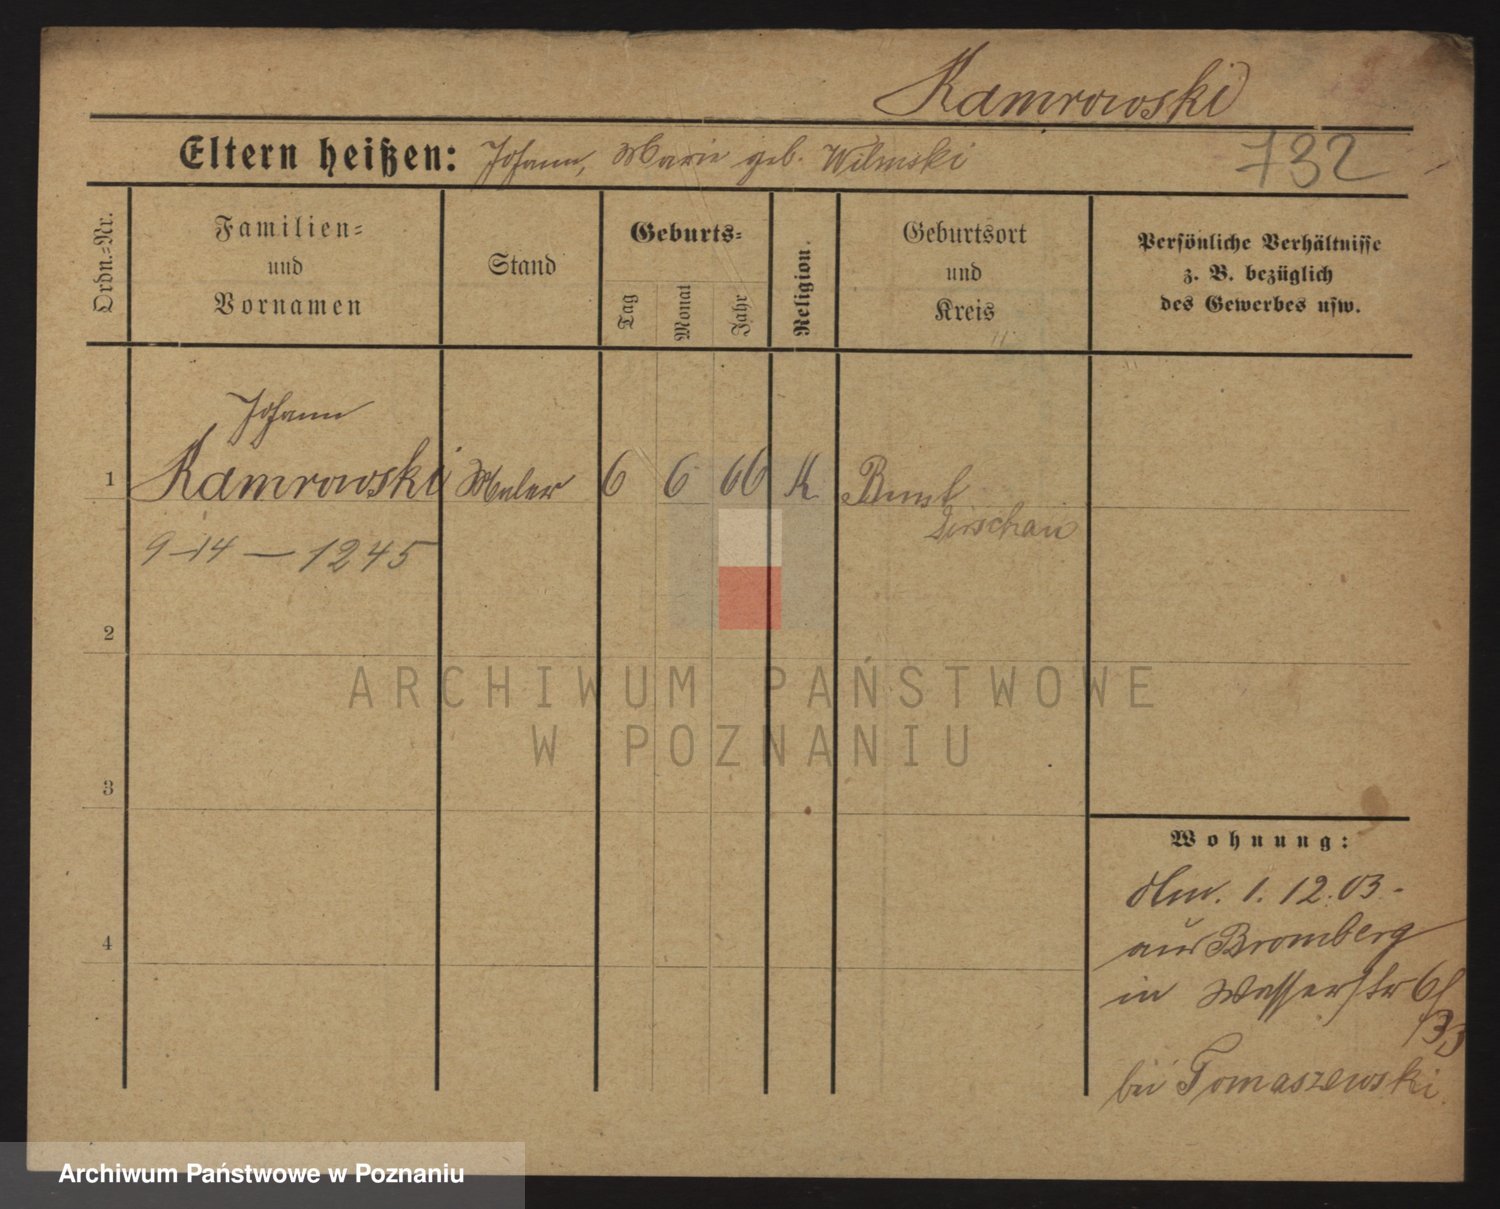 Kamrowski
Eltern heißen: Johann, Marie geb. Wilmski
732
Ordn.-Nr.
Familien-
und
Vornamen
Stand
Geburts-
Tag
Monat
Jahr
Religion.
Geburtsort
und
Kreis
Persönliche Verhältnisse
z. B. bezüglich
des Gewerbes usw.
Johann
1 Kamrowski Maler 6 6 66 K
Dirschau
9-14-1245
2
3
4
ARCHIWUM PAŃSTWOWE
W POZNANIU
Wohnung:
1.12.03-
aus Bromberg
in Wasserstr
bei Tomaszewski.
Archiwum Państwowe w Poznaniu